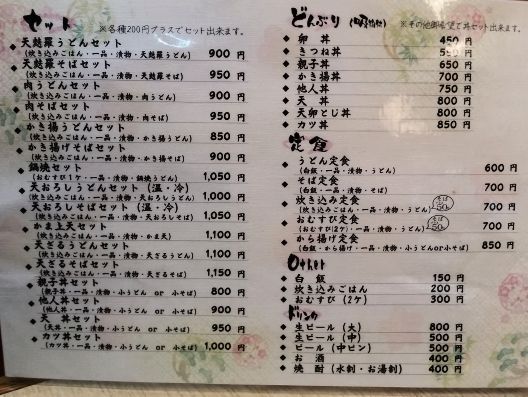 セット ※各種200円プラスでセット出来ます。
天麩羅うどんセット
(炊き込みごはん・一品・漬物・天麩羅うどん) 900 円
天麩羅そばセット
(炊き込みごはん・一品・漬物・天麩羅そば) 950 円
肉うどんセット
(炊き込みごはん・一品・漬物・肉うどん) 900 円
肉そばセット
(炊き込みごはん・一品・漬物・肉そば) 950 円
かき揚うどんセット
(炊き込みごはん・一品・漬物・かき揚うどん) 850 円
かき揚げそばセット
(炊き込みごはん・一品・漬物・かき揚そば) 900 円
鍋焼セット
(おむすび1ケ・一品・漬物・鍋焼うどん) 1,050 円
天おろしうどんセット (温・冷)
(炊き込みごはん・一品・漬物・天おろしうどん) 1,000 円
天おろしそばセット (温・冷)
(炊き込みごはん・一品・漬物・天おろしそば) 1,050 円
かま上天セット
(炊き込みごはん・一品・漬物・かま天) 1,100 円
天ざるうどんセット
(炊き込みごはん・一品・漬物・天ざるうどん) 1,100 円
天ざるそばセット
(炊き込みごはん・一品・漬物・天ざるそば) 1,150 円
親子丼セット
(親子丼・一品・漬物・小うどん or 小そば) 800 円
他人丼セット
(他人丼・一品・漬物・小うどん or 小そば) 900 円
天 丼セット
(天丼・一品・漬物・小うどん or 小そば) 950 円
カツ丼セット
(カツ丼・一品・漬物・小うどん or 小そば) 1,000 円
どんぶり ※その他御希望で丼セット出来ます。
卵 丼 450 円
きつね丼 550 円
親子丼 650 円
かき揚丼 700 円
他人丼 750 円
天 丼 800 円
天卵とじ丼 800 円
カツ丼 850 円
定食
うどん定食
(白飯・一品・漬物・うどん) 600 円
そば定食
(白飯・一品・漬物・そば) 700 円
炊き込み定食
(炊き込みごはん・一品・漬物・うどん) 700 円
おむすび定食
(おむすび2ケ・一品・漬物・うどん) 700 円
から揚げ定食
(白飯・一品・から揚げ・漬物・小うどんor小そば) 850 円
Other
白 飯 150 円
炊き込みごはん 200 円
おむすび (2ケ) 300 円
ドリンク
生ビール (大) 800 円
生ビール (中) 500 円
ビール (中ビン) 500 円
お 酒 400 円
焼 酎 (水割・お湯割) 400 円